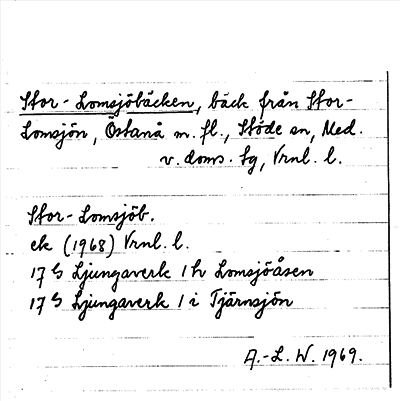 Stor-Lomsjöbäcken, bäck från Stor-
Lomsjön, Östanå m. fl., Stöde sn, Med.
v. doms. tg, Vrnl. l.
Stor-Lomsjöb.
ek (1968) Vrnl. l.
17 G Ljungaverk 1 h Lomsjöåsen
17 G Ljungaverk 1 i Tjärnsjön
A.-L. W. 1969.